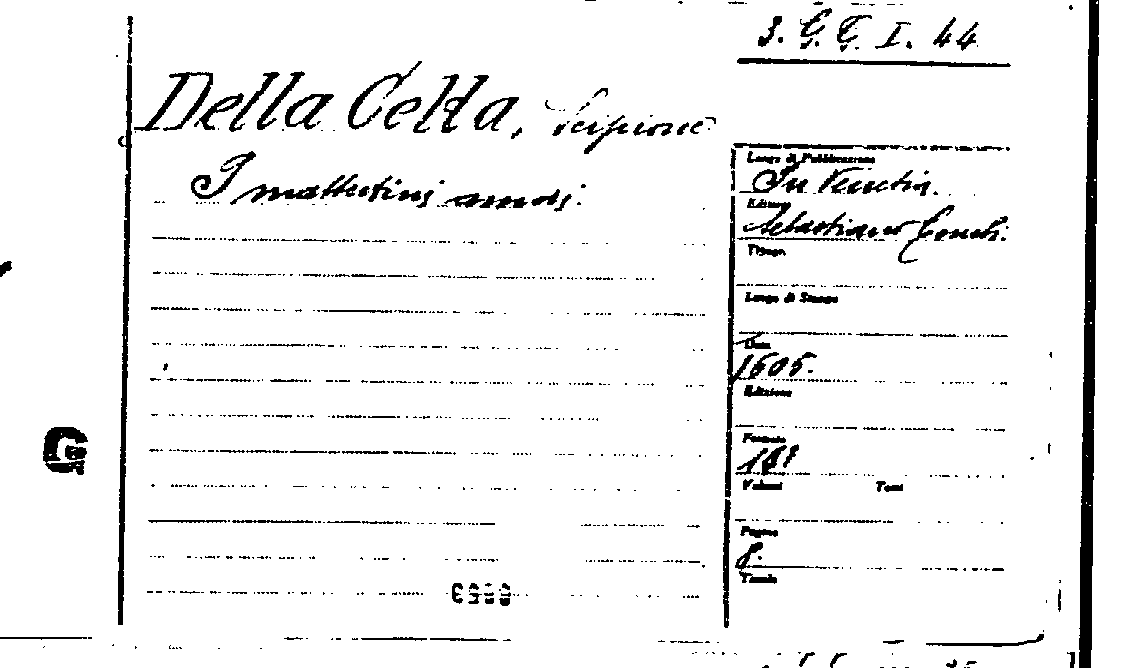 3. G. E. I. 44
Della Cella, Scipione
I mattutini amori.
Luogo di Pubblicazione
In Venetia.
Editore
Sebastiano Combi.
Tipogr.
Luogo di Stampa
Data
1605.
Edizione
Formato
16°
Volumi Tomi
Pagine
8.
Tavole